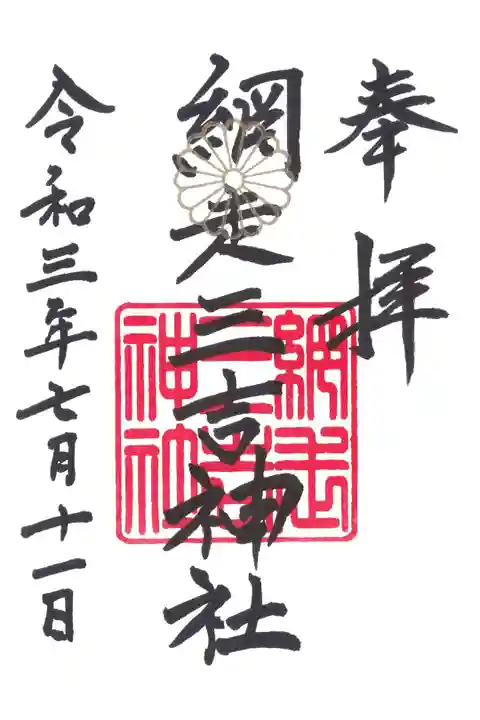 奉拝
網走三吉神社
令和三年七月十一日
網走
三吉
神社